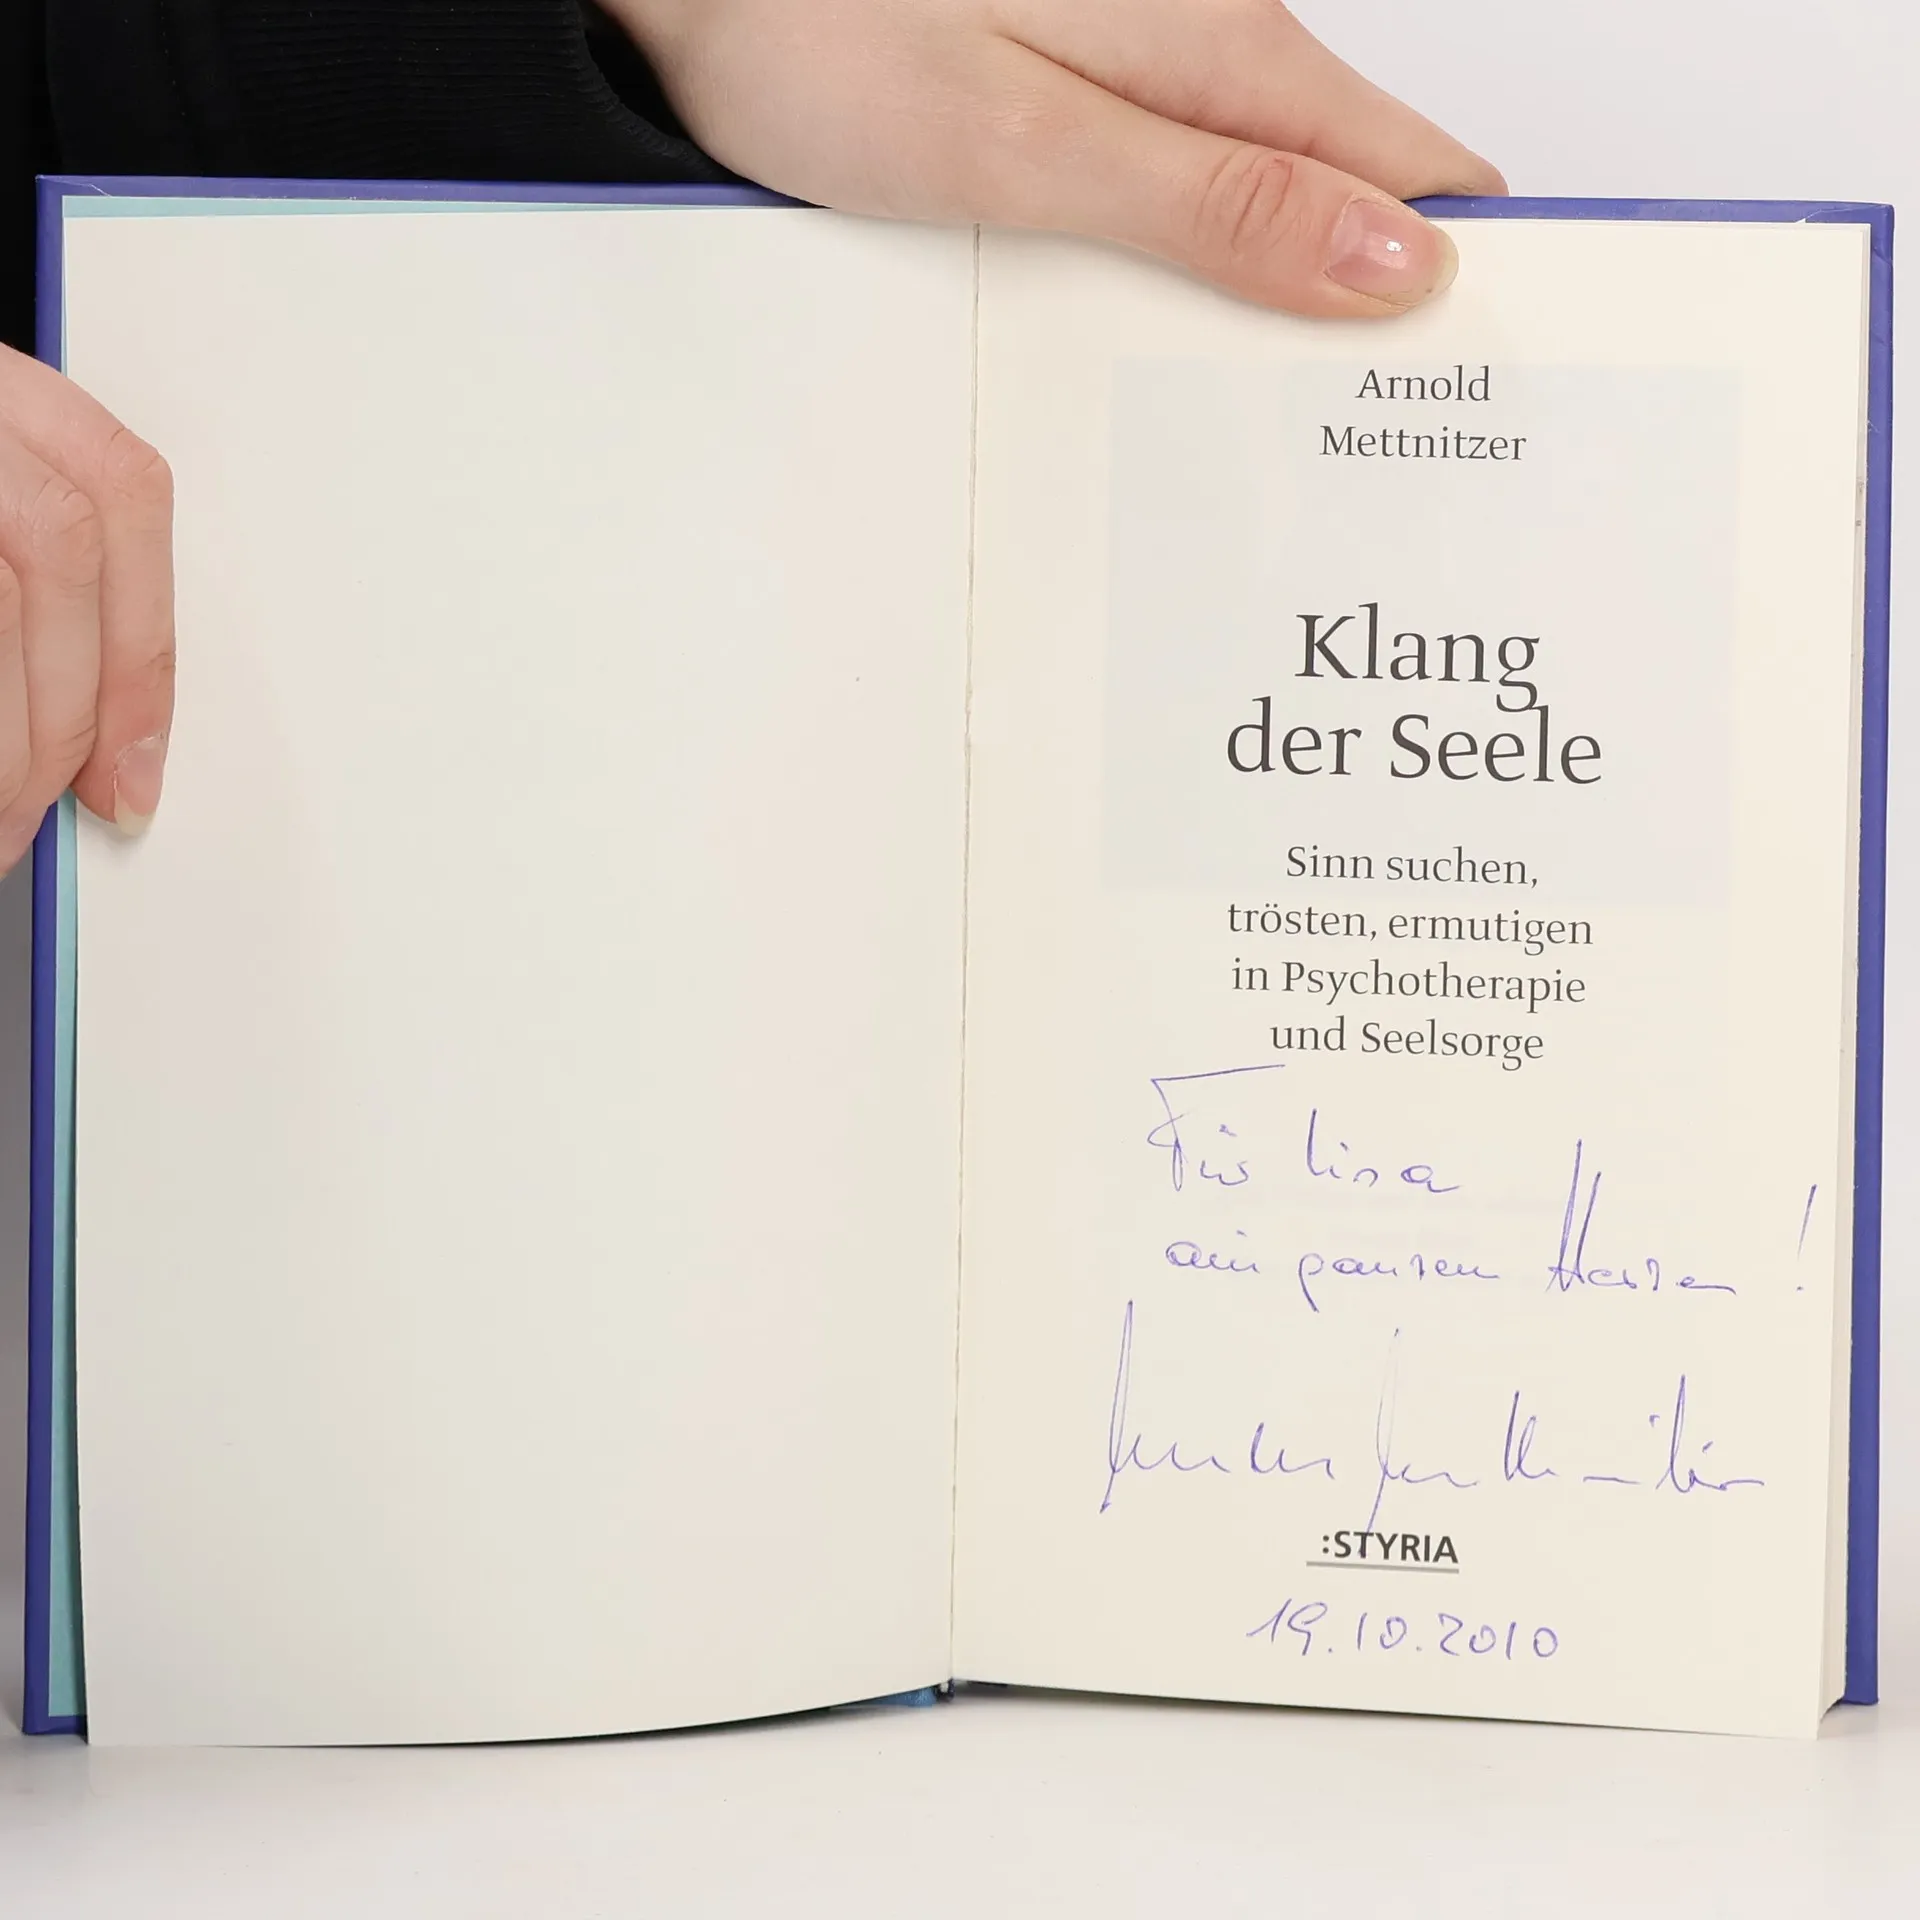 Arnold
Mettnitzer
Klang
der Seele
Sinn suchen,
trösten, ermutigen
in Psychotherapie
und Seelsorge
Für Lisa
ganzem Herzen!
:STYRIA
19.10.2010